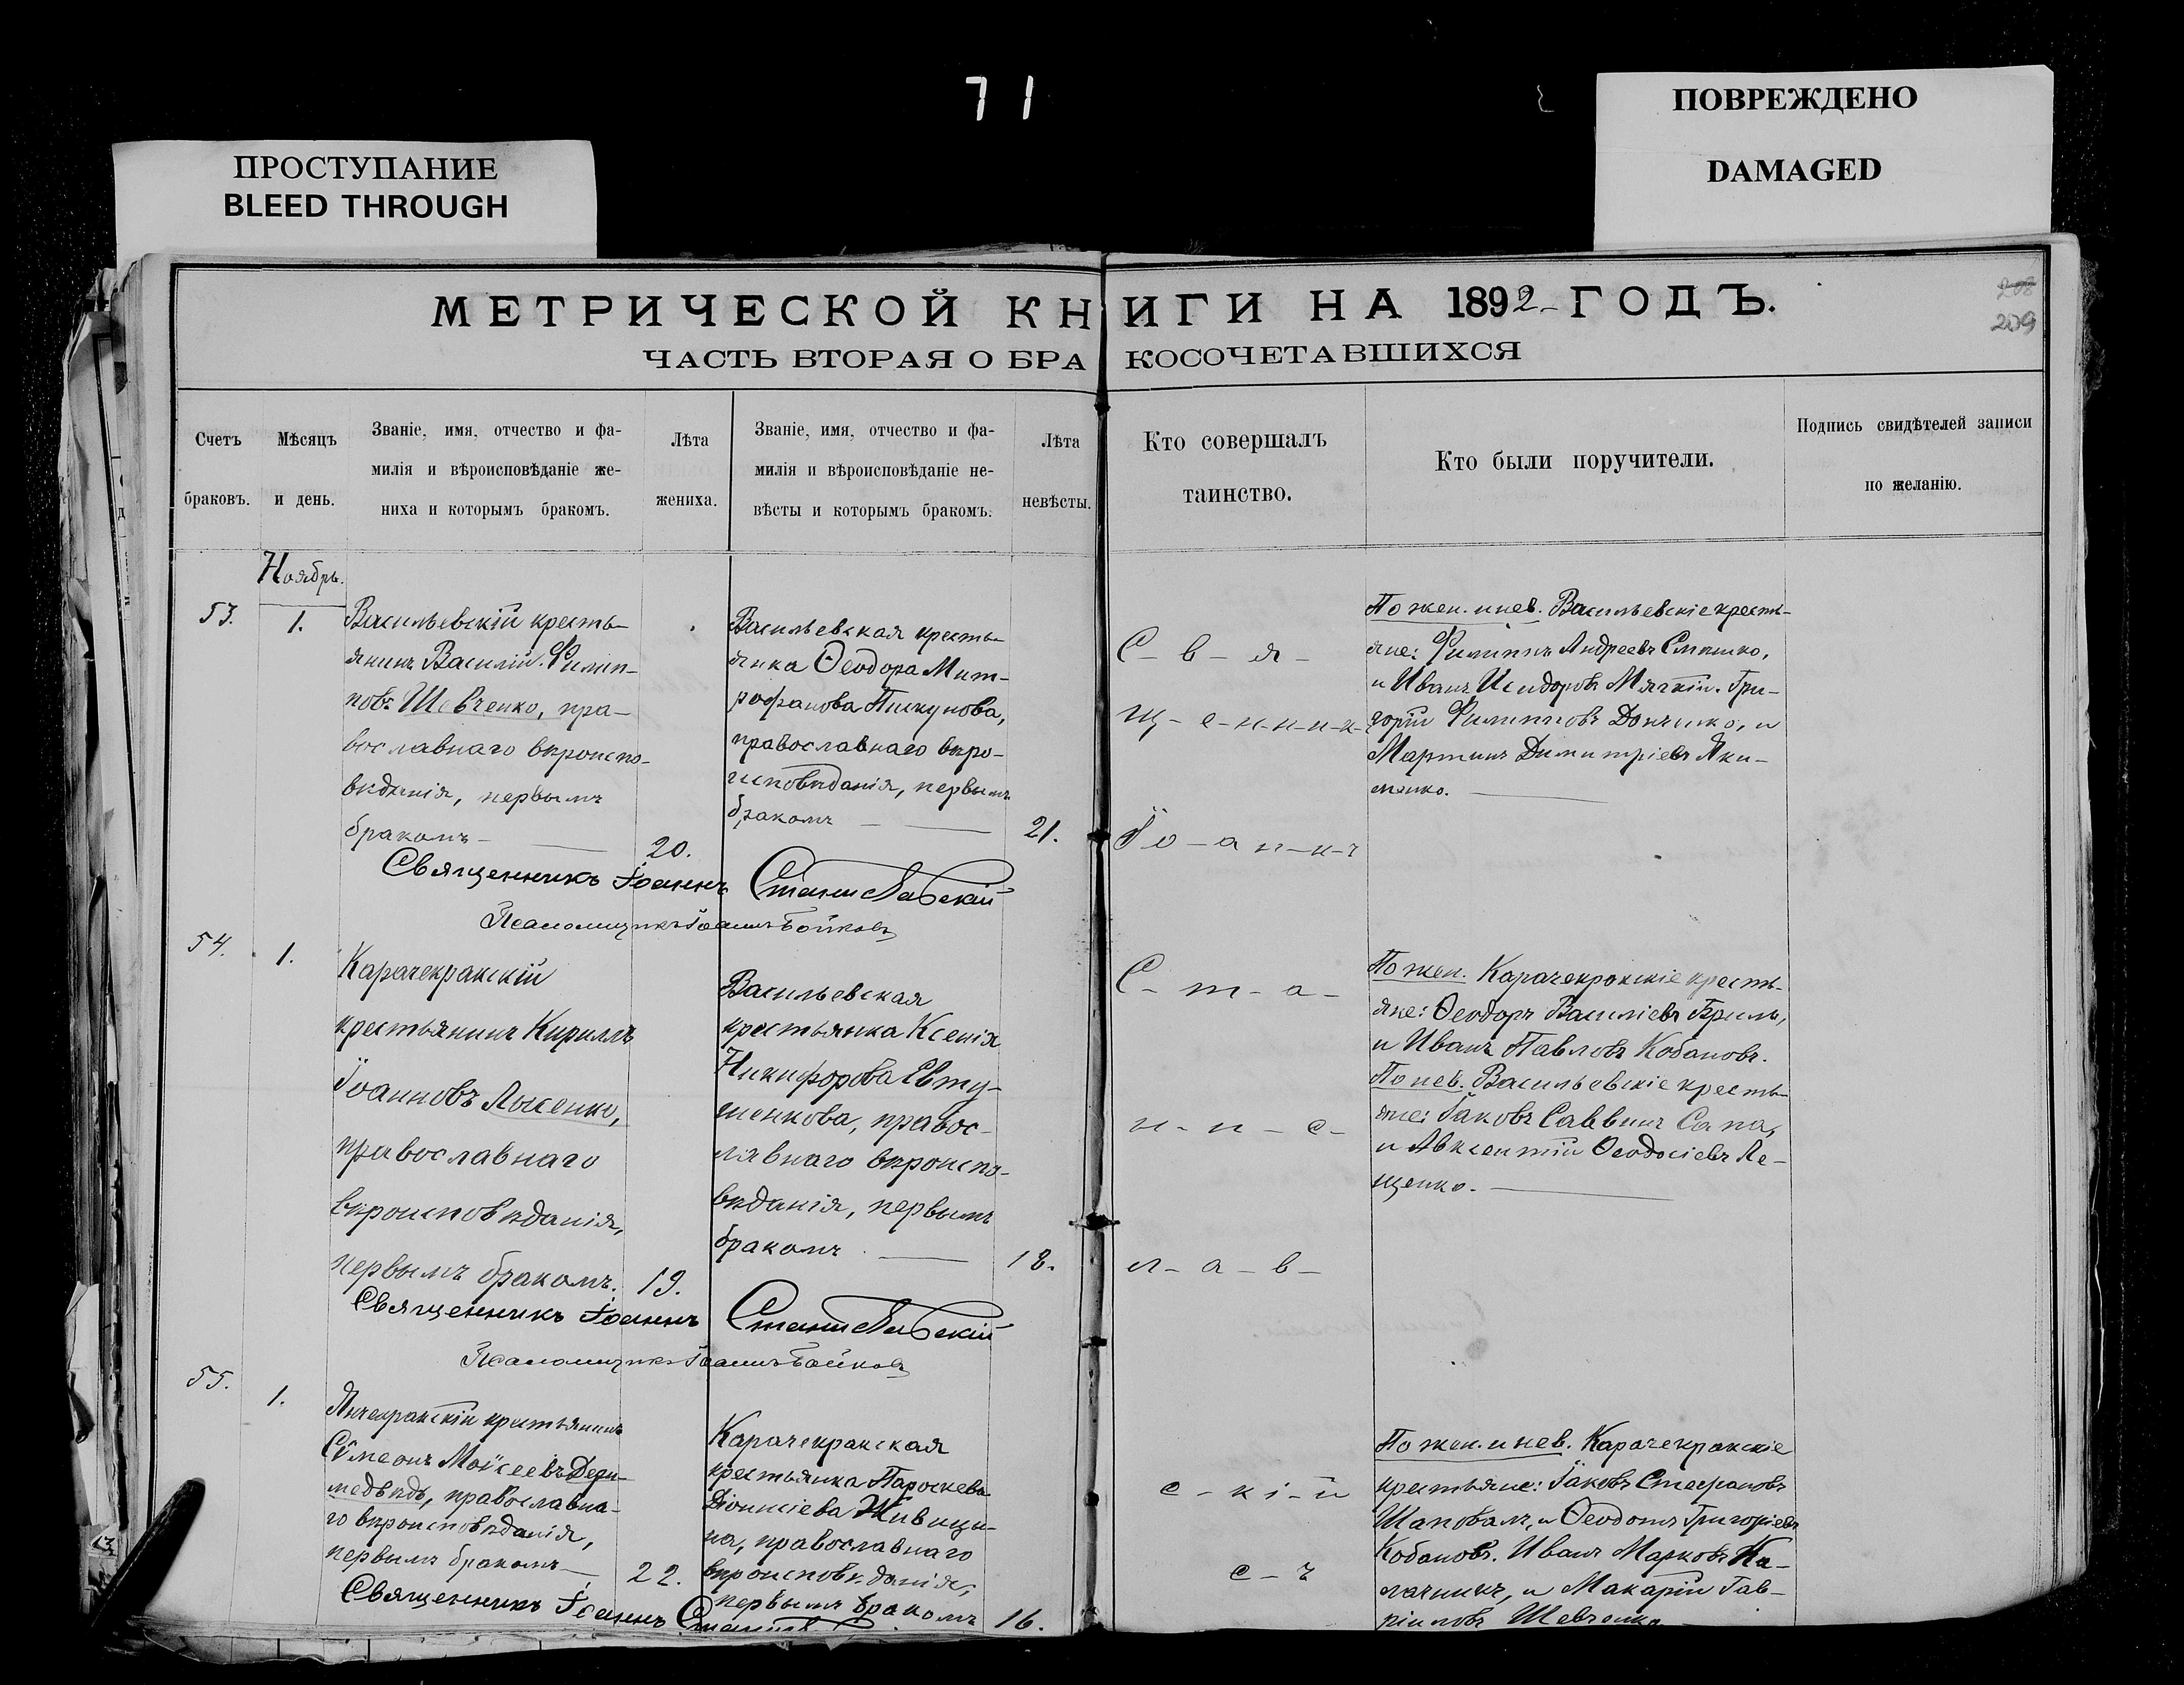 71
ПОВРЕЖДЕНО
DAMAGED
ПРОСТУПАНИЕ
BLEED THROUGH
МЕТРИЧЕСКОЙ КНИГИ НА 1892 ГОДЪ.
ЧАСТЬ ВТОРАЯ О БРАКОСОЧЕТАВШИХСЯ
208
209
Счетъ
браковъ.
Мѣсяцъ
и день.
Званіе, имя, отчество и фа-
милія и вѣроисповѣданіе же-
ниха и которымъ бракомъ.
Лѣта
жениха.
Званіе, имя, отчество и фа-
милія и вѣроисповѣданіе не-
вѣсты и которымъ бракомъ.
Лѣта
невѣсты.
Кто совершалъ
таинство.
Кто были поручители.
Подпись свидѣтелей записи
по желанію.
Ноябрь.
53.
1.
Васильевскій кресть-
янинъ Василій Филип-
повъ Шевченко, пра-
вославнаго вѣроиспо-
вѣданія, первымъ
бракомъ
20.
Васильевская кресть-
янка Ѳеодора Мит-
рофанова Пискунова,
православнаго вѣро-
исповѣданія, первымъ
бракомъ
21.
С-в-я-
щ-е-н-н-и-к-
Іо-а-н-н-ъ
По жен. и нев. Васильевскіе кресть-
яне: Филиппъ Андреевъ
и Иванъ Исидоровъ Мягкій. Гри-
горій Филипповъ Донченко, и
Мартинъ Димитріевъ Яки-
менко.
Священникъ Іоаннъ Станиславскій
Псаломщикъ Іоаннъ Бойковъ
54.
1.
Карачекракскій
крестьянинъ Кириллъ
Іоанновъ Лысенко,
православнаго
вѣроисповѣданія,
первымъ бракомъ.
19.
Васильевская
крестьянка Ксенія
Никифорова Евту-
шенкова, правос-
лавнаго вѣроиспо-
вѣданія, первымъ
бракомъ
18.
С-т-а-
н-и-с-
л-а-в-
По жен. Карачекракскіе кресть-
яне: Ѳеодоръ Василіевъ Бриль,
и Иванъ Павловъ Кобановъ.
По нев. Васильевскіе кресть-
яне: Іаковъ Саввинъ Сапа,
и Авксентій Ѳеодосіевъ Ле-
щенко.
Священникъ Іоаннъ Станиславскій
Псаломщикъ Іоаннъ Бойковъ
55.
1.
Янчекракскій крестьянинъ
Сѵмеонъ Моѵсеевъ Дери-
медвѣдь, православна-
го вѣроисповѣданія,
первымъ бракомъ
22.
Карачекракская
крестьянка Параскева
Діонисіева Живици-
на, православнаго
вѣроисповѣданія,
первымъ бракомъ
16.
с-кі-й
с-ъ
По жен. и нев. Карачекракскіе
крестьяне: Іаковъ Стефановъ
Шаповалъ, и Ѳеодотъ Григоріевъ
Кобановъ. Иванъ Марковъ Па-
лачникъ, и Макарій Гав-
ріиловъ Шевченко.
Священникъ Іоаннъ